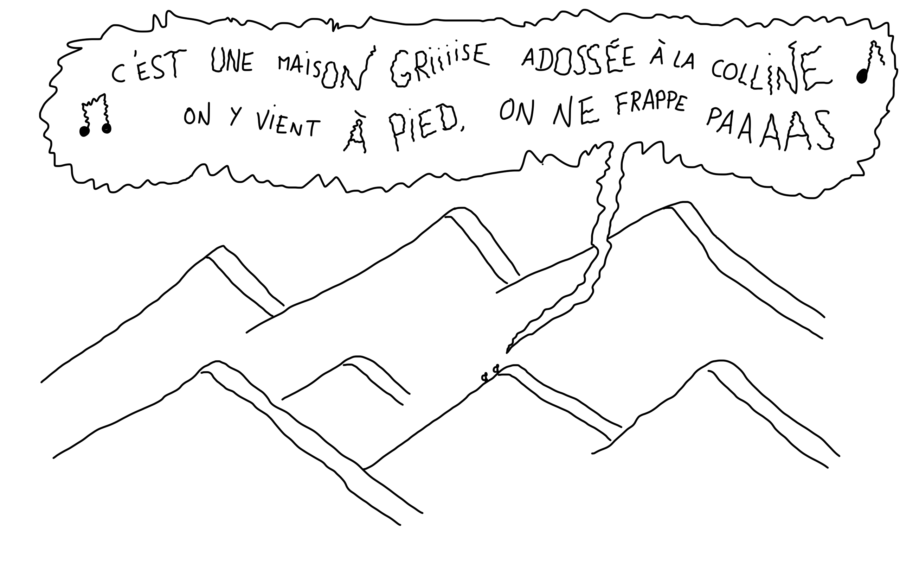 C'EST UNE MAISON GRiiiiSE ADOSSÉE À LA COLLiNE
ON Y ViENT À PiED, ON NE FRAPPE PAAAAS